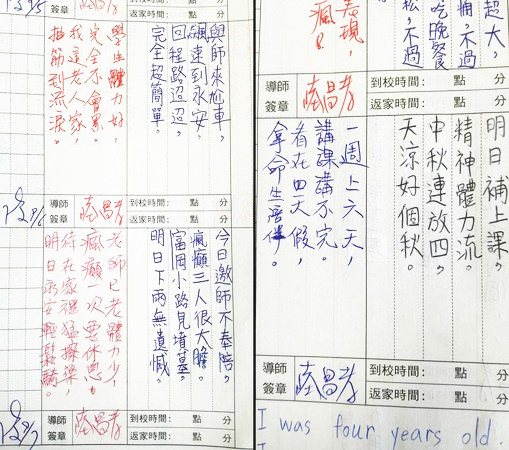 與師來尬車，
飆速到永安。
回程路迢迢，
完全超簡單。
學生體力好，
完全不會累。
我這老人家，
抽筋到流淚。
導師
簽章
到校時間： 點 分
返家時間： 點 分
今日邀師不奉陪。
瘋癲三人很大膽。
富岡小路見墳墓。
明日下雨無遺憾。
老師已老體力少，
瘋癲一次要休息。
待在家裡猛擦澡，
明日永安輕鬆騎。
導師
簽章
到校時間： 點 分
返家時間： 點 分
超大，
痛，不過
吃晚餐
松，不過
表現，
瘋！
導師
簽章
到校時間： 點 分
返家時間： 點 分
明日補上課。
精神體力流。
中秋連放四。
天涼好個秋。
一週上六天，
講課講不完。
看在四天假，
拿命生陪伴。
導師
簽章
到校時間： 點 分
返家時間： 點 分
I was four years old.